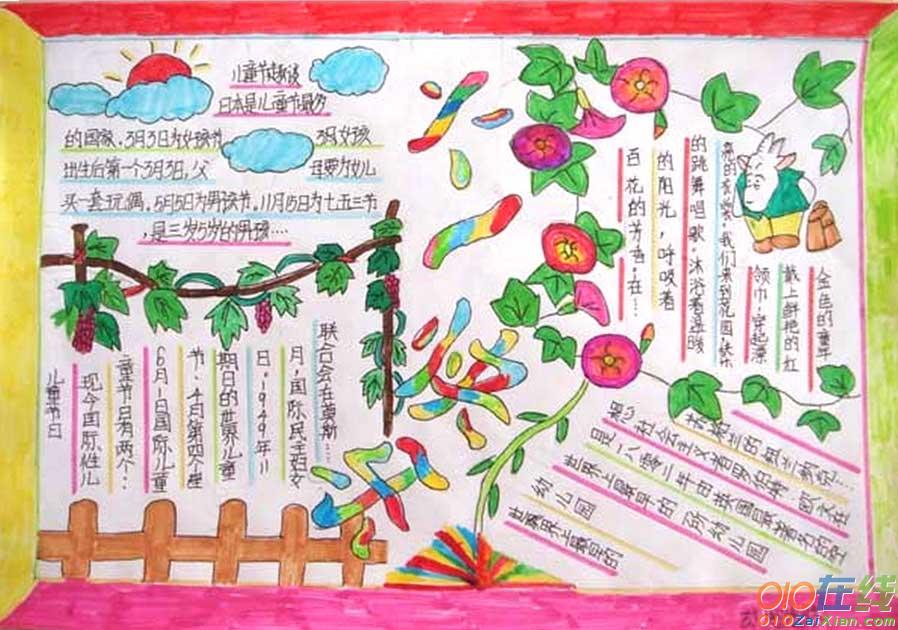 儿童节趣谈
日本是儿童节最多
的国家,3月3日为女孩节 3次女孩
出生后第一个3月3日,父 母要为女儿
买一套玩偶,5月5日为男孩节,11月15日为七五三节
,是三岁5岁的男孩…
儿童节日
现今国际性儿
童节日有两个:
6月1日国际儿童
节、4月第四个星
期日的世界儿童
日。1949年11
月,国际民主妇女
联合会在莫斯…
金色的童年
戴上鲜艳的红
领巾,穿起漂
亮的衣裳,我们来到花园,快乐
的跳舞唱歌,沐浴着温暖
的阳光,呼吸着
百花的芳香,在…
世界上最早的
幼儿园
世界上最早的一所幼儿园
是一八零二年由英国最著名的空
想社会主义者罗伯特·欧文在
苏格兰的纽兰
010在线
010ZaiXian.com